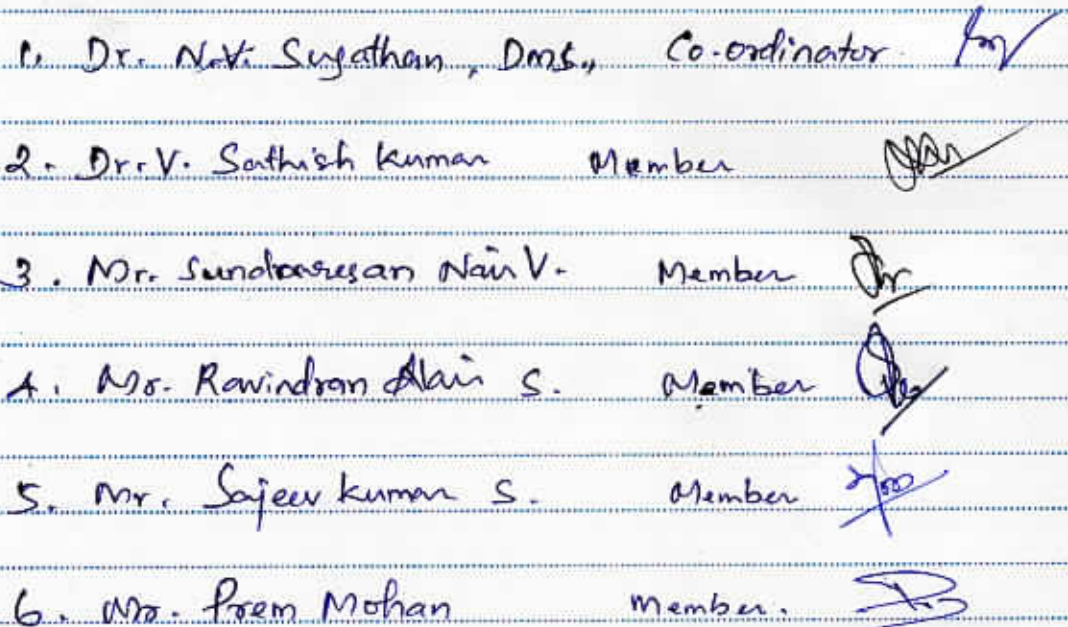 1. Dr. N.V. Sugathan, Dms., Co-ordinator
2. Dr. V. Sathish Kumar Member
3. Mr. Sundaresan Nair V. Member
4. Mr. Ravindran Nair S. Member
5. Mr. Sajeev kumar S. Member
6. Mr. Prem Mohan Member.